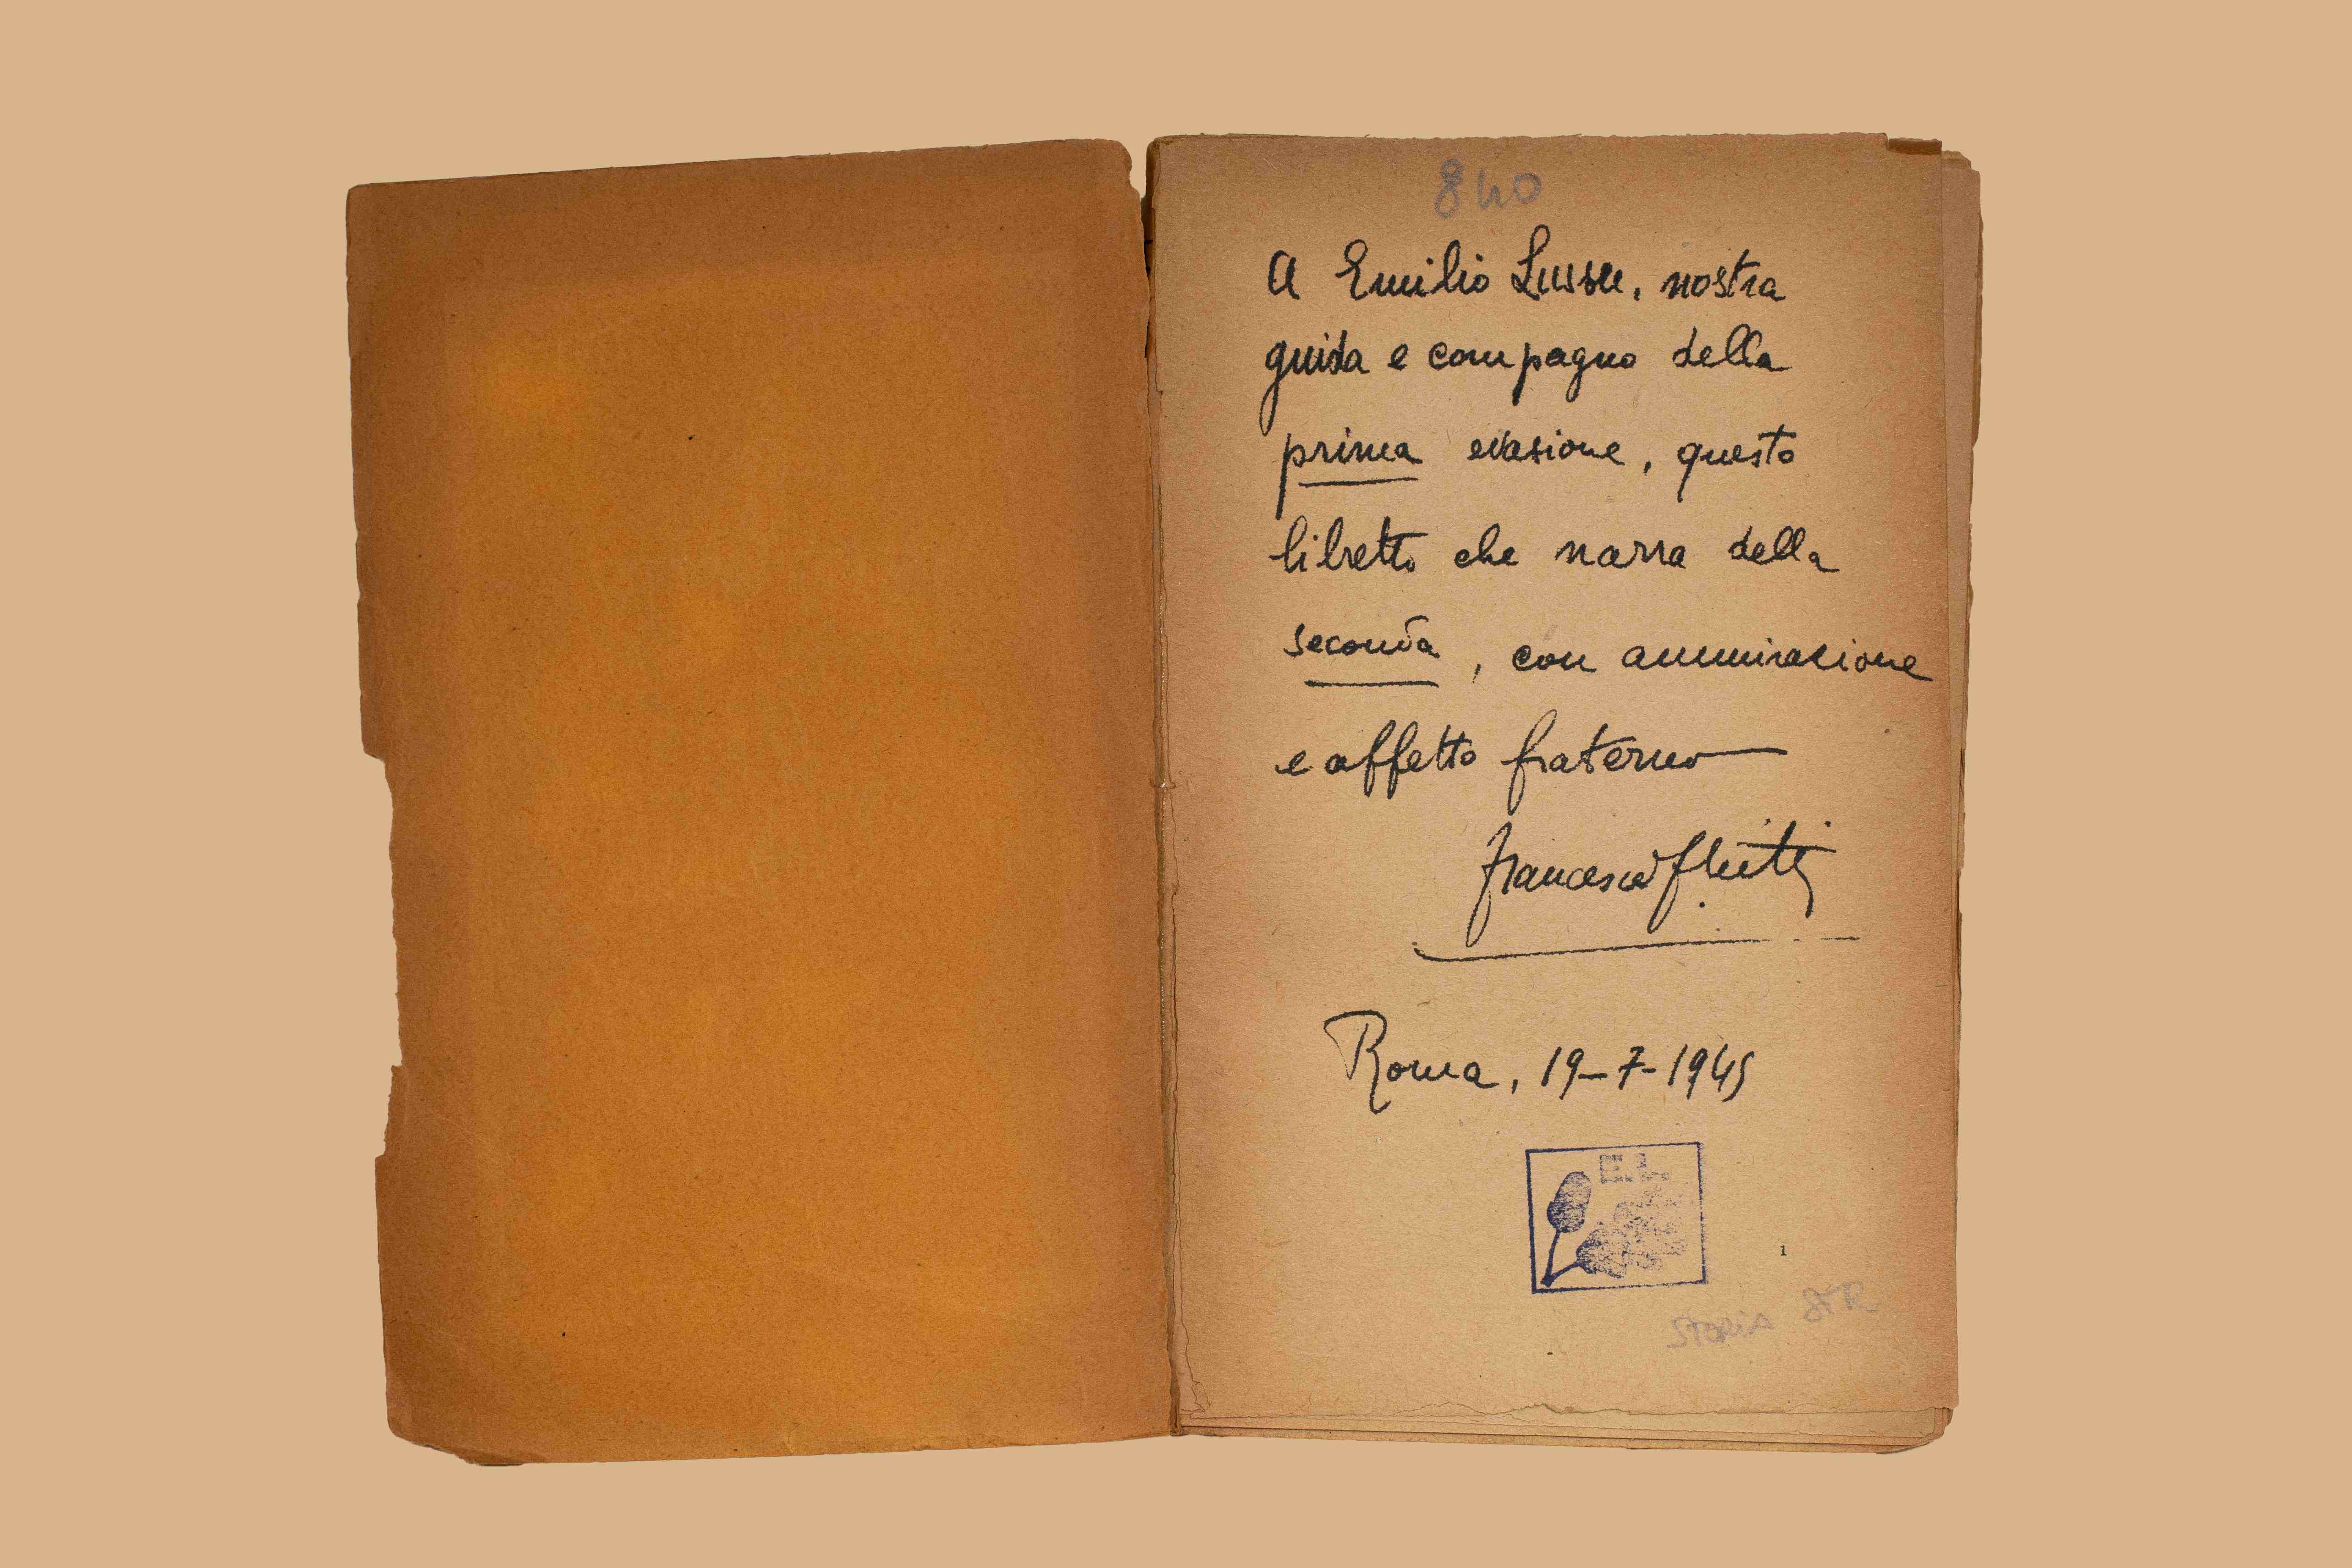 840
A Emilio Lussu, nostra
guida e compagno della
prima evasione, questo
libretto che narra della
seconda, con ammirazione
e affetto fraterno
Francesco F Nitti
Roma, 19-7-1945
E.L.
1
STORIA STR